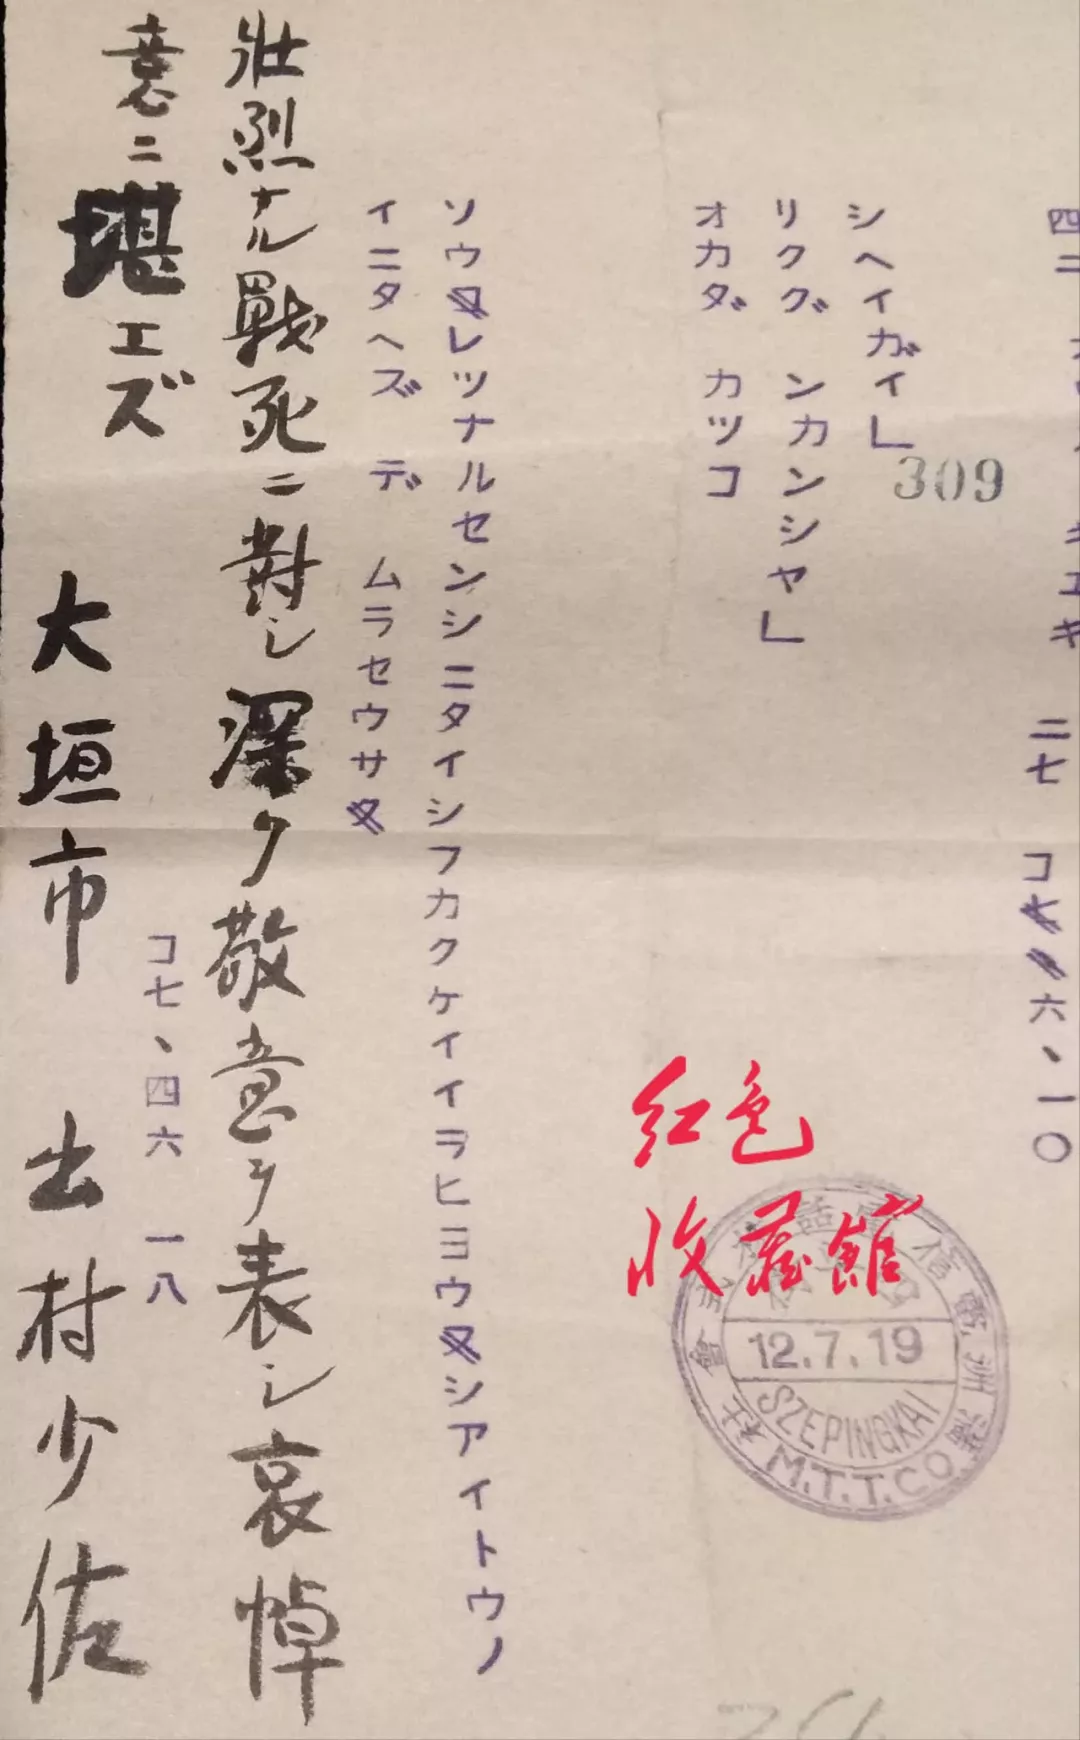 二七 コ七〃六、一〇
シヘイガイ」
309
リクグンカンシヤ」
オカダ カツコ
ソウレツナルセンシニタイシフカクケイイラヒヨウシアイトウノ
イニタヘズ デムラセウサ
壯烈ナル戰死ニ對シ深ク敬意ヲ表シ哀悼
意ニ堪エズ
コ七、四六 一八
大垣市 出村少佐
红色
收藏館
滿洲電信電話株式會社
12.7.19
SZEPINGKAI
M.T.T.CO.